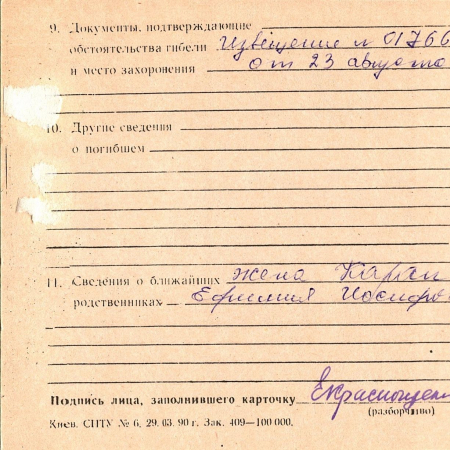 9. Документы, подтверждающие
обстоятельства гибели Извещение № 01766
и место захоронения от 23 августа
10. Другие сведения
о погибшем
11. Сведения о ближайших жена Каран
родственниках Ефимия Иосифо
Подпись лица, заполнившего карточку
(разборчиво)
Киев. СПТУ № 6. 29. 03. 90 г. Зак. 409—100 000.